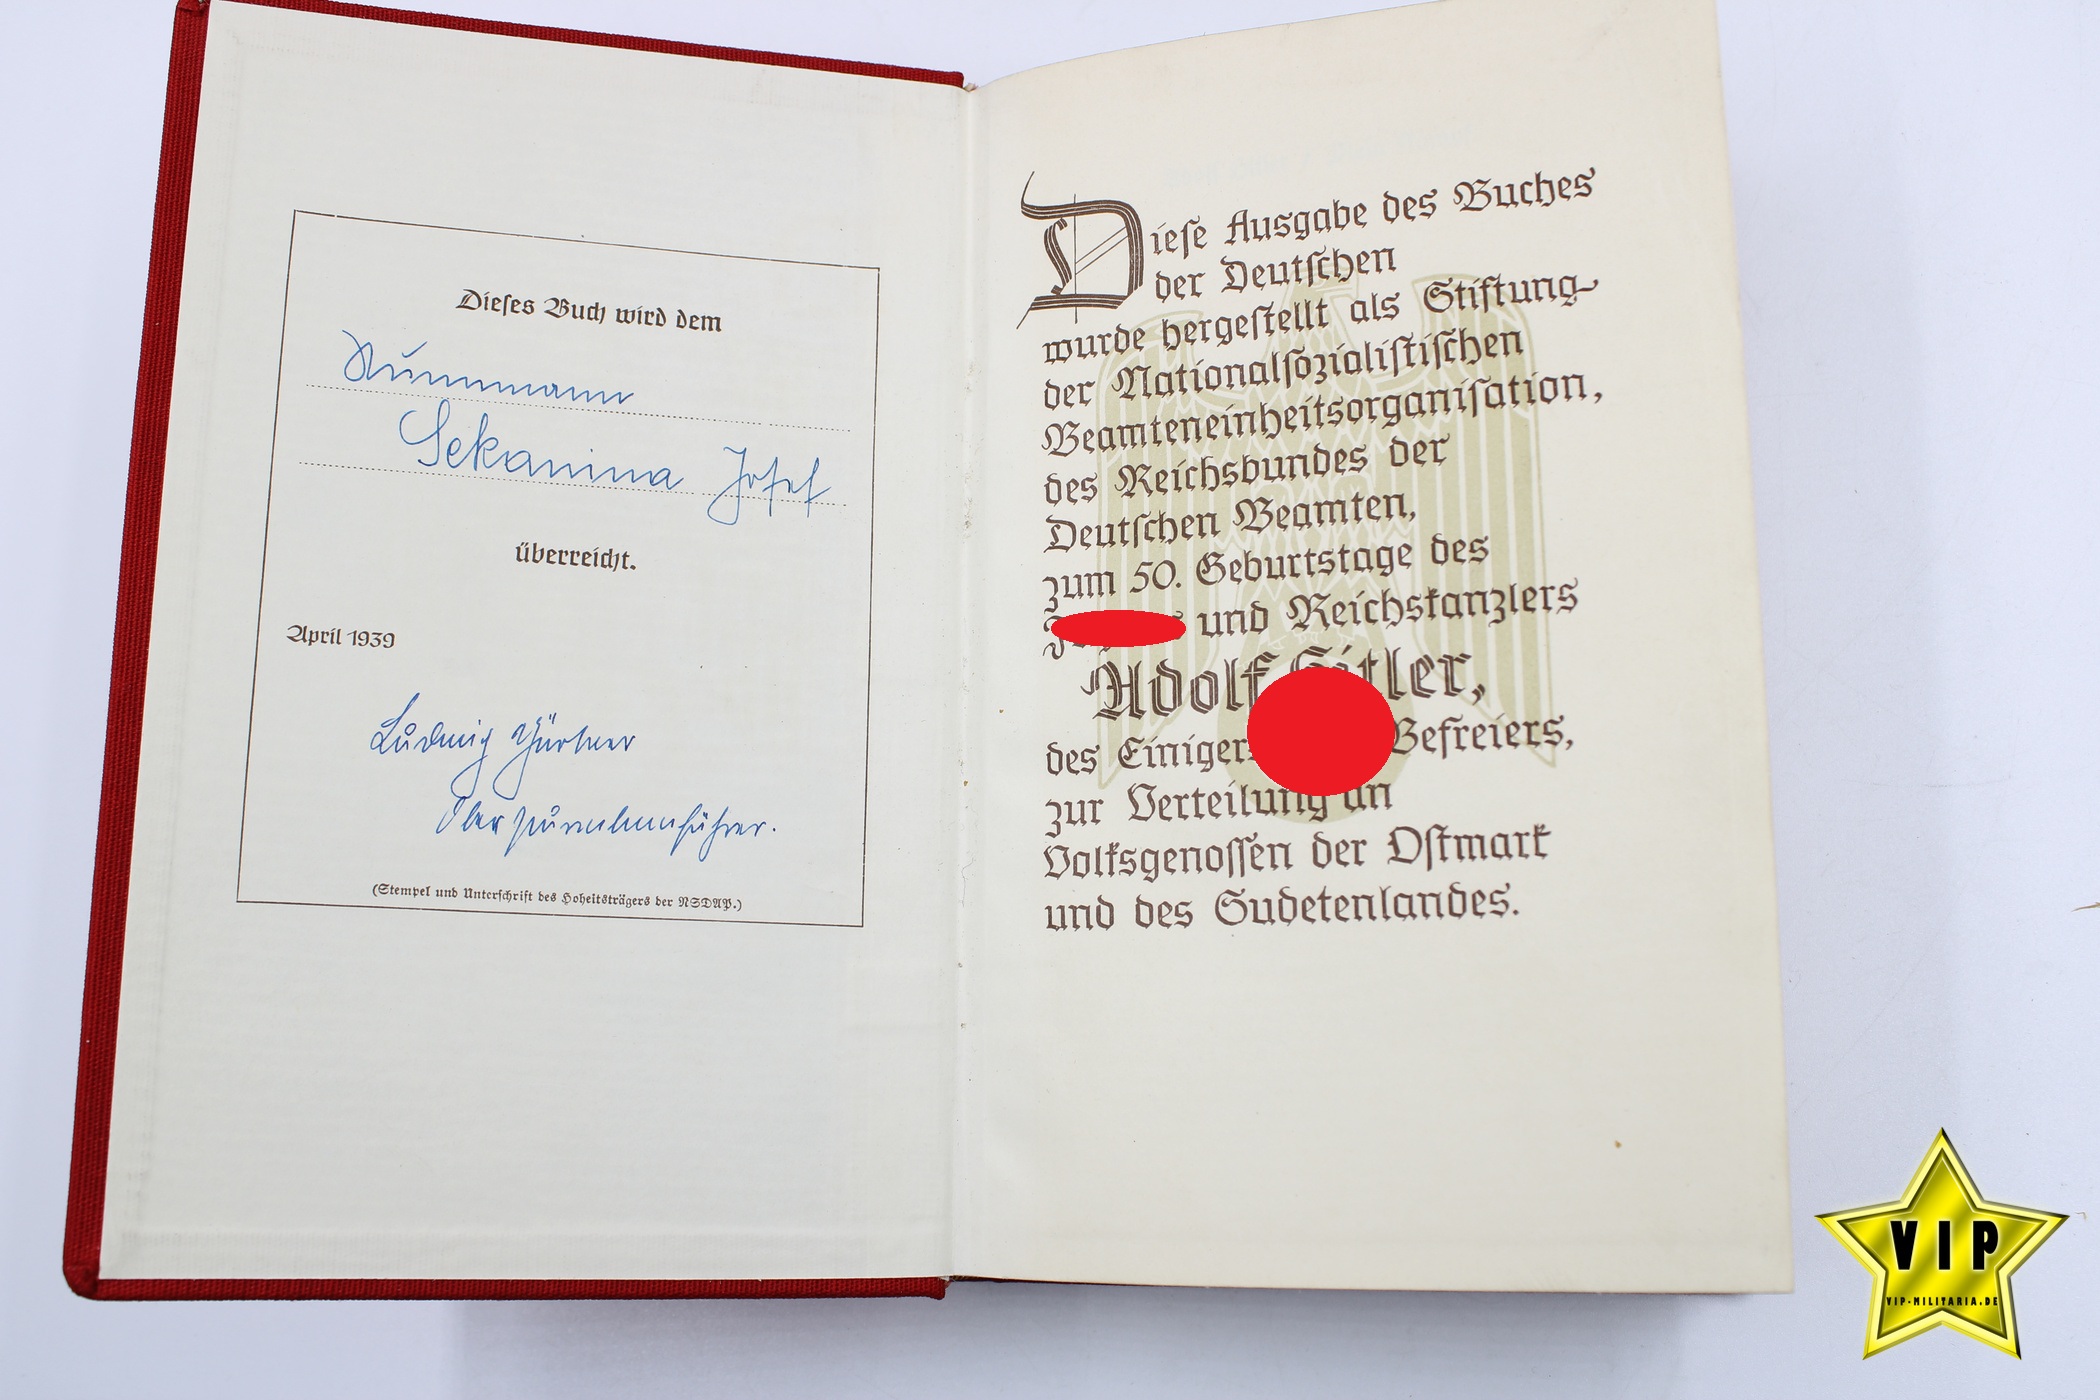 Dieses Buch wird dem
Sekanina Josef
überreicht.
April 1939
Ludwig Gürtner
(Stempel und Unterschrift des Hoheitsträgers der NSDAP.)
Diese Ausgabe des Buches
der Deutschen
wurde hergestellt als Stiftung
der Nationalsozialistischen
Beamteneinheitsorganisation,
des Reichsbundes der
Deutschen Beamten,
zum 50. Geburtstage des
und Reichskanzlers
Adolf Hitler,
des Einigers Befreiers,
zur Verteilung an
Volksgenossen der Ostmark
und des Sudetenlandes.
VIP
VIP-MILITARIA.DE